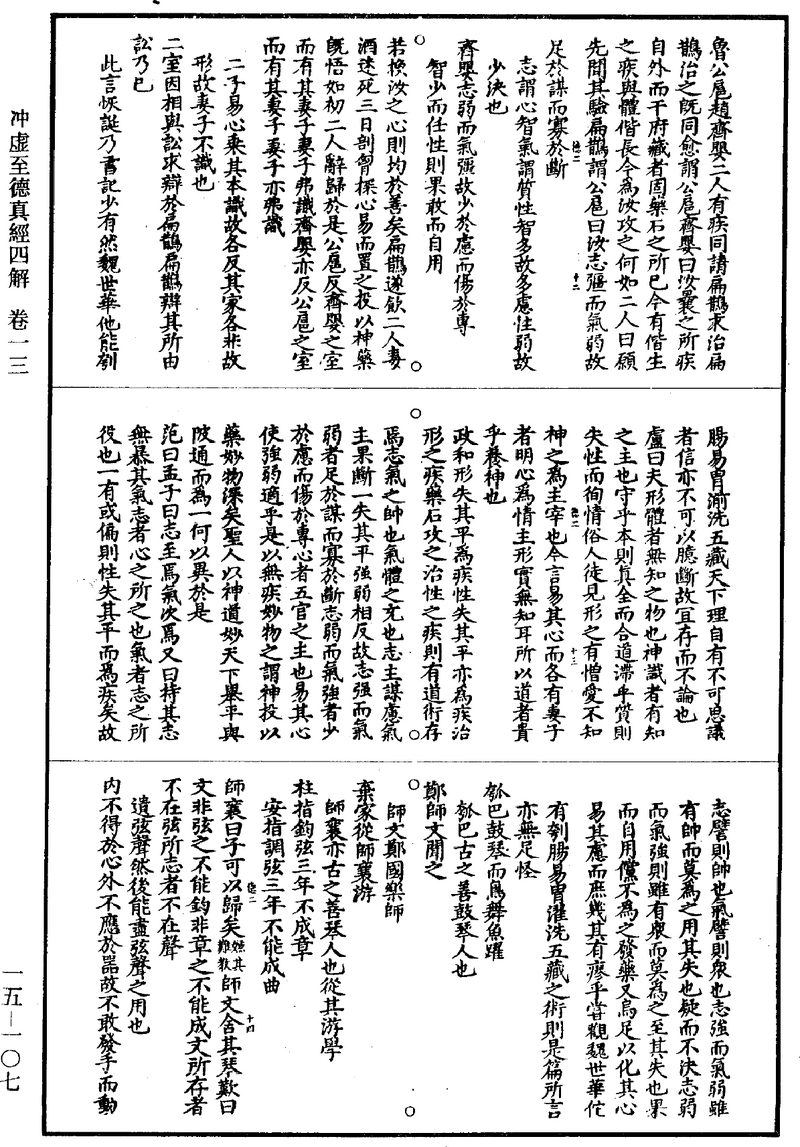 冲虚至德真經四解 卷一三
一五—一〇七
魯公扈趙齊嬰二人有疾同請扁鵲求治扁
鵲治之旣同愈謂公扈齊嬰曰汝曩之所疾
自外而干府藏者固藥石之所已今有偕生
之疾與體偕長今為汝攻之何如二人曰願
先聞其驗扁鵲謂公扈曰汝志彊而氣弱故
足於謀而寡於斷
志謂心智氣謂質性智多故多慮性弱故
少決也
齊嬰志弱而氣彊故少於慮而傷於專
智少而任性則果敢而自用
若換汝之心則均於善矣扁鵲遂飲二人毒
酒迷死三日剖胷探心易而置之投以神藥
旣悟如初二人辭歸於是公扈反齊嬰之室
而有其妻子妻子弗識齊嬰亦反公扈之室
而有其妻子妻子亦弗識
二子易心乘其本識故各反其家各非故
形故妻子不識也
二室因相與訟求辯於扁鵲扁鵲辯其所由
訟乃已
此言恢誕乃書記少有然魏世華他能刳
腸易胃湔洗五藏天下理自有不可思議
者信亦不可以臆斷故宜存而不論也
盧曰夫形體者無知之物也神識者有知
之主也守乎本則真全而合道滯乎質則
失性而徇情俗人徒見形之有憎愛不知
神之為主宰也今言易其心而各有妻子
者明心為情主形實無知耳所以道者貴
乎養神也
政和形失其平為疾性失其平亦為疾治
形之疾藥石攻之治性之疾則有道術存
焉志氣之帥也氣體之充也志主謀慮氣
主果斷一失其平強弱相反故志强而氣
弱者足於謀而寡於斷志弱而氣強者少
於慮而傷於專心者五官之主也易其心
使強弱適乎是以無疾妙物之謂神投以
藥妙物深矣聖人以神道妙天下舉平與
陂通而為一何以異於是
范曰孟子曰志至焉氣次焉又曰持其志
無暴其氣志者心之所之也氣者志之所
役也一有或偏則性失其平而為疾矣故
志譬則帥也氣譬則衆也志強而氣弱雖
有帥而莫為之用其失也疑而不決志弱
而氣強則雖有衆而莫為之至其失也果
而自用儻不為之發藥又烏足以化其心
易其慮而庶幾其有瘳乎嘗觀魏世華佗
有刳腸易胃濯洗五藏之術則是篇所言
亦無足怪
瓠巴鼓琴而鳥舞魚躍
瓠巴古之善鼓琴人也
鄭師文聞之
師文鄭國樂師
棄家從師襄游
師襄亦古之善琴人也從其游學
柱指鈞弦三年不成章
安指調弦三年不能成曲
師襄曰子可以歸矣嫌其難教師文舍其琴歎曰
文非弦之不能鈞非章之不能成文所存者
不在弦所志者不在聲
遺弦聲然後能盡弦聲之用也
内不得於心外不應於器故不敢發手而動